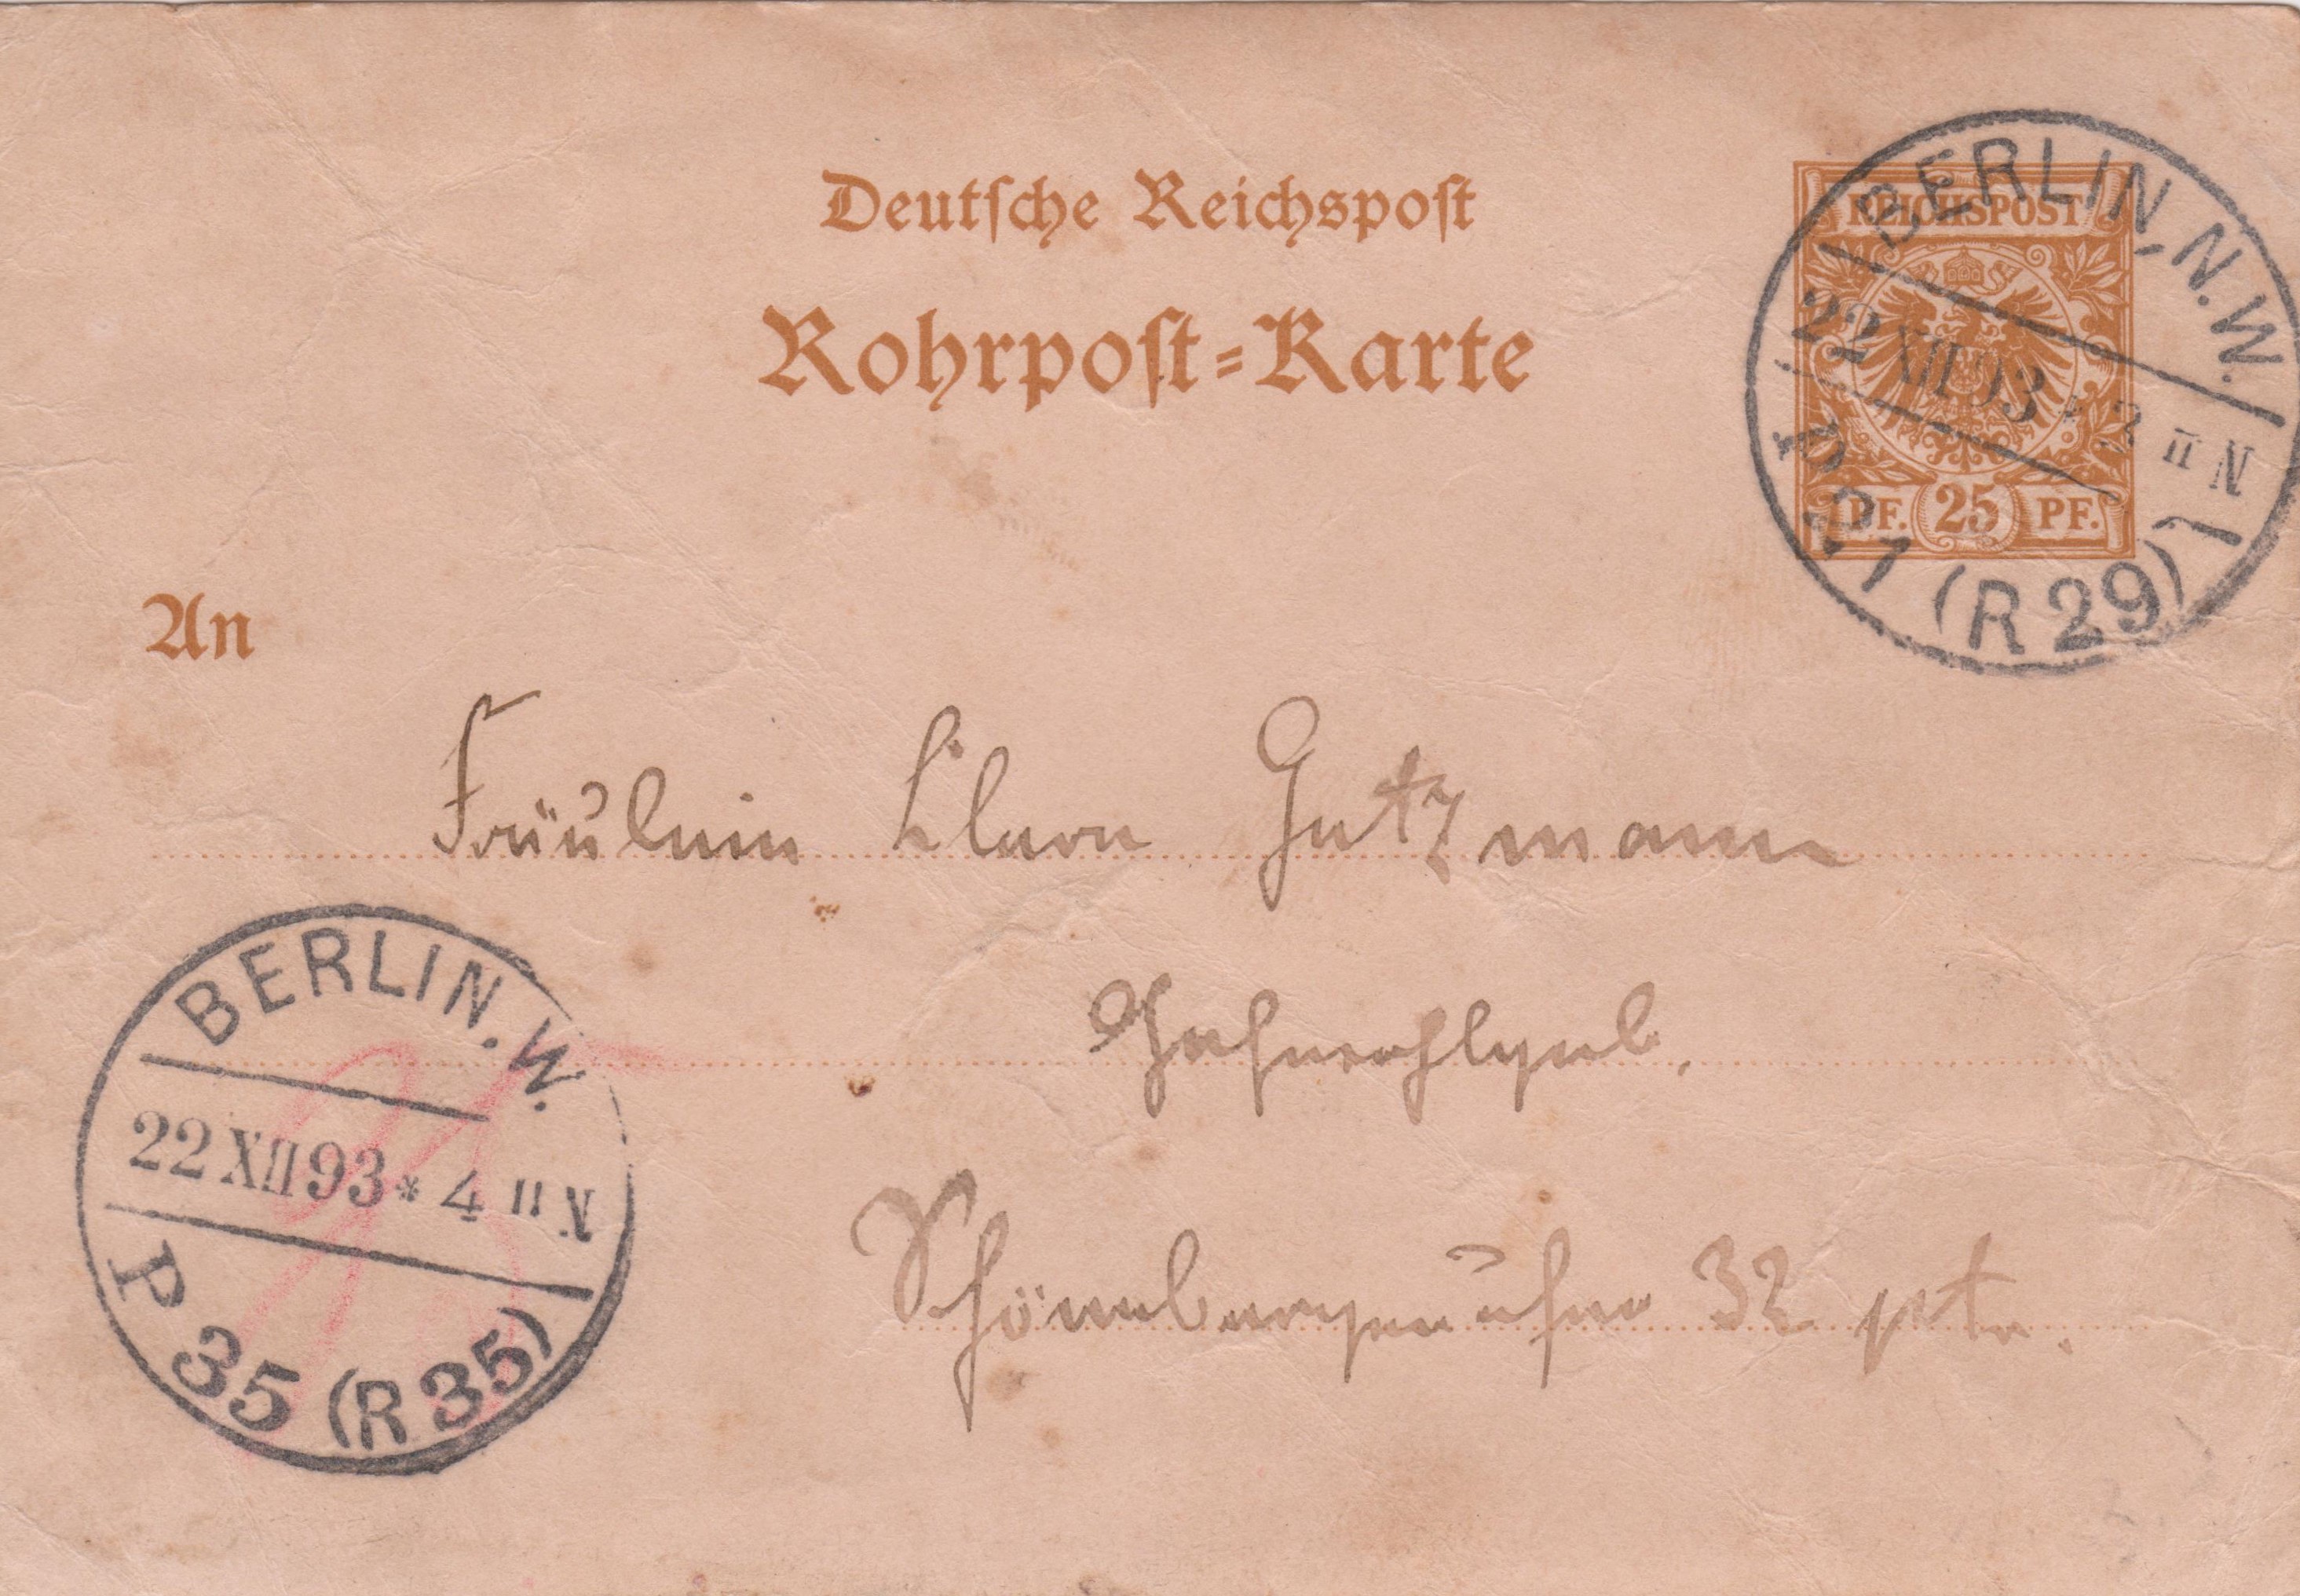 Deutſche Reichspoſt
Rohrpoſt-Karte
REICHSPOST
PF. 25 PF.
BERLIN, N.W.
22 XII 93 * II N
(R 29)
An
Fräulein Clara Gutzmann
Hochwohlgeb.
Schönebergerufer 32 ptr.
BERLIN. W.
22 XII 93 * 4 II N
P 35 (R 35)